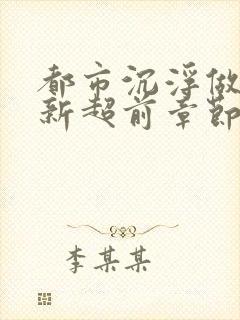 都市沉浮做
新超前章節
李某某